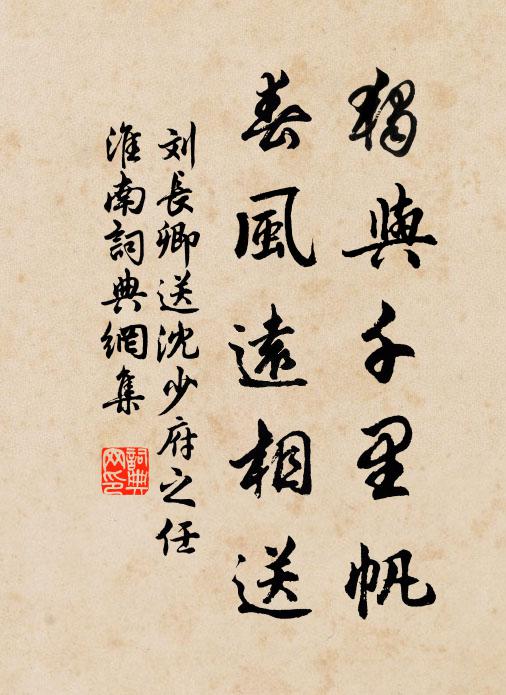 獨與千里帆
春風遠相送
刘長卿送沈少府之任
淮南詞典網集
詞典網印